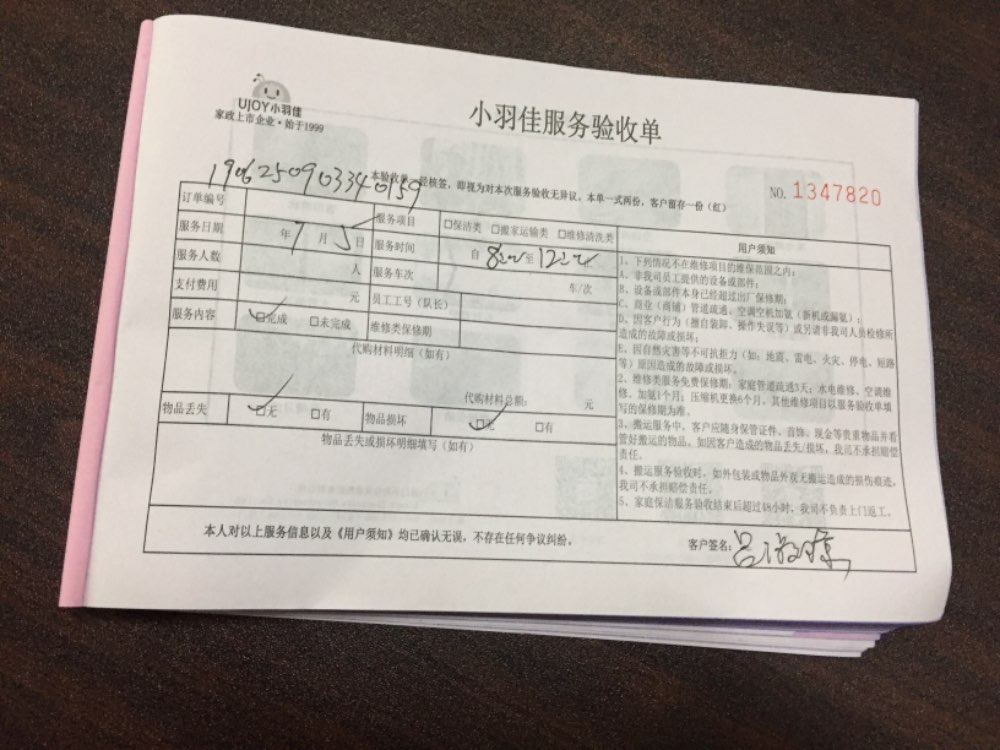 UJOY小羽佳
家政上市企业·始于1999
小羽佳服务验收单
1906250903340159
本验收单一经核签，即视为对本次服务验收无异议。本单一式两份，客户留存一份（红）
NO. 1347820
订单编号
服务项目 □保洁类 □搬家运输类 □维修清洗类
服务日期 年 7 月 5 日
服务时间 自 8:00 至 12:00
服务人数 人
服务车次 车/次
支付费用 元
员工工号（队长）
服务内容 ☑完成 □未完成
维修类保修期
代购材料明细（如有）
代购材料总额： 元
物品丢失 ☑无 □有
物品损坏 ☑无 □有
物品丢失或损坏明细填写（如有）
用户须知
1、下列情况不在维修项目的维保范围之内：
A、非我司员工提供的设备或部件；
B、设备或部件本身已经超过出厂保修期；
C、商业（商铺）管道疏通、空调空机加氨（新机或漏氨）；
D、因客户行为（擅自装卸、操作失误等）或另请非我司人员检修所
造成的故障或损坏；
E、因自然灾害等不可抗拒力（如：地震、雷电、火灾、停电、短路
等）原因造成的故障或损坏。
2、维修类服务免费保修期：家庭管道疏通3天；水电维修、空调维
修、加氨1个月；压缩机更换6个月，其他维修项目以服务验收单填
写的保修期为准。
3、搬运服务中，客户应随身保管证件、首饰、现金等贵重物品并看
管好搬运的物品。如因客户造成的物品丢失/损坏，我司不承担赔偿
责任。
4、搬运服务验收时，如外包装或物品外观无搬运造成的损伤痕迹，
我司不承担赔偿责任。
5、家庭保洁服务验收结束后超过48小时，我司不负责上门返工。
本人对以上服务信息以及《用户须知》均已确认无误，不存在任何争议纠纷。
客户签名：吕